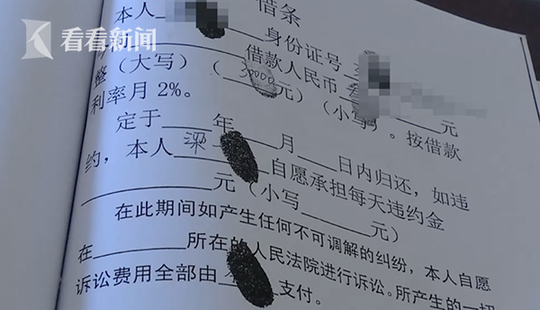 看看新闻
借条
本人____身份证号____
____借款人民币____元
整(大写)(30000元)(小写)。按借款
利率月2%。
定于____年____月____日内归还,如违
约,本人梁____自愿承担每天违约金
________元(小写______元)
在此期间如产生任何不可调解的纠纷,本人自愿
在________所在的人民法院进行诉讼。所产生的一切
诉讼费用全部由____支付。